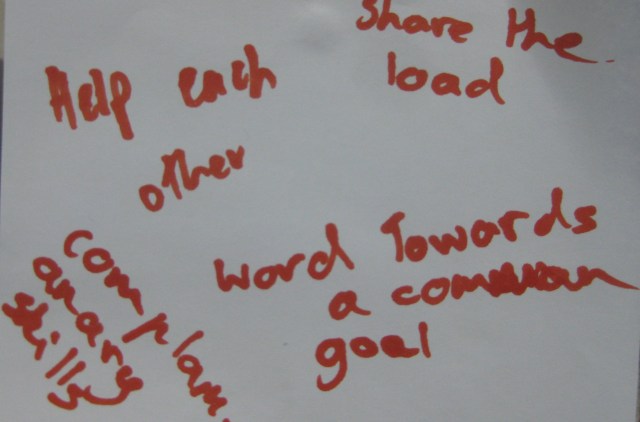 Share the
load
Help each
other
word Towards
a common
goal
complam.
anary
skills